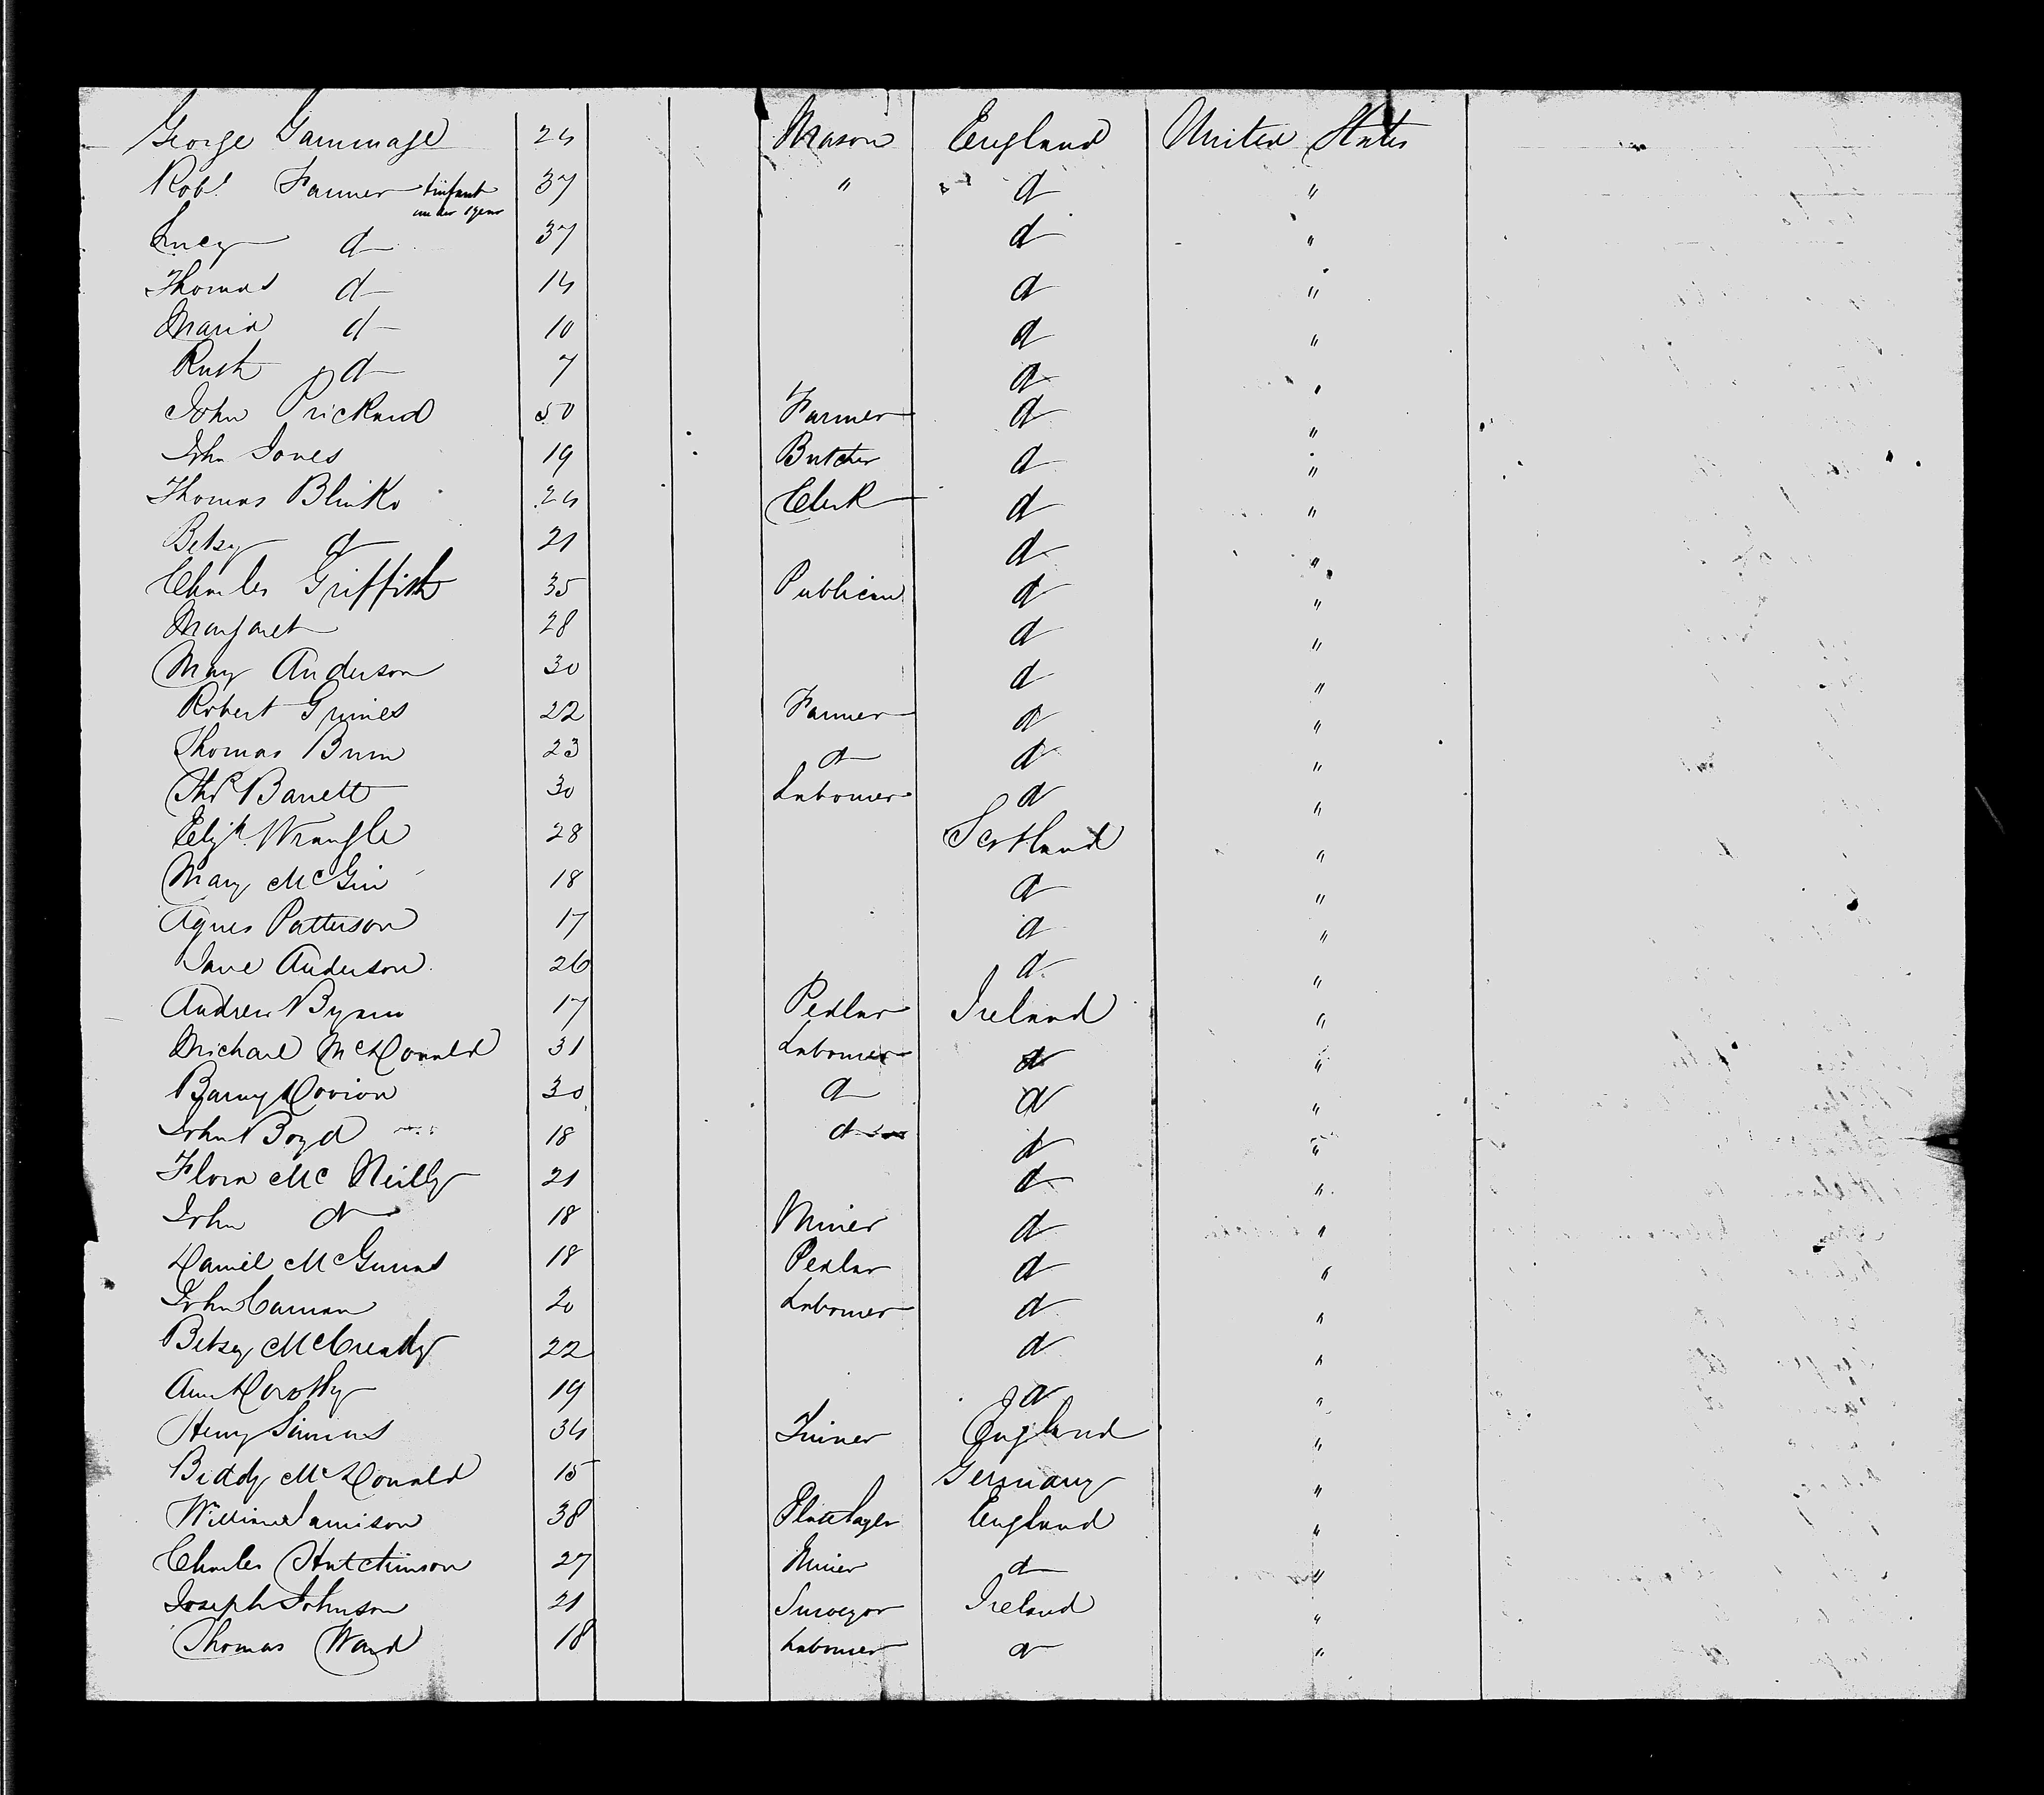 George Gammage 24 Mason England United States
Robt Farmer + infant under 1 year 37 " d "
Lucy d 37 d "
Thomas d 14 d "
Maria d 10 d "
Ruth d 7 d "
John Prickard 50 Farmer d "
John Jones 19 Butcher d "
Thomas Blinko 24 Clerk d "
Betsy d 21 d "
Charles Griffith 35 Publican d "
Margaret 28 d "
Mary Anderson 30 d "
Robert Grimes 22 Farmer d "
Thomas Bunn 23 d d "
Thos Barrett 30 Labourer d "
Elizh Wrangle 28 Scotland "
Mary McGin 18 d "
Agnes Patterson 17 d "
Jane Anderson 26 d "
Andrew Byrne 17 Pedlar Ireland "
Michael McDonald 31 Labourer d "
Barny Dorion 30 d d "
John Boyd 18 d d "
Flora McNeilly 21 d "
John d 18 Miner d "
Daniel McGuines 18 Pedlar d "
John Carnan 20 Labourer d "
Betsy McCready 22 d "
Ann Dorothy 19 d "
Henry Simms 34 Joiner England "
Biddy McDonald 15 Germany "
William Jamison 38 Platelayer England "
Charles Hutchinson 27 Miner d "
Joseph Johnson 21 Surveyor Ireland "
Thomas Ward 18 Labourer d "